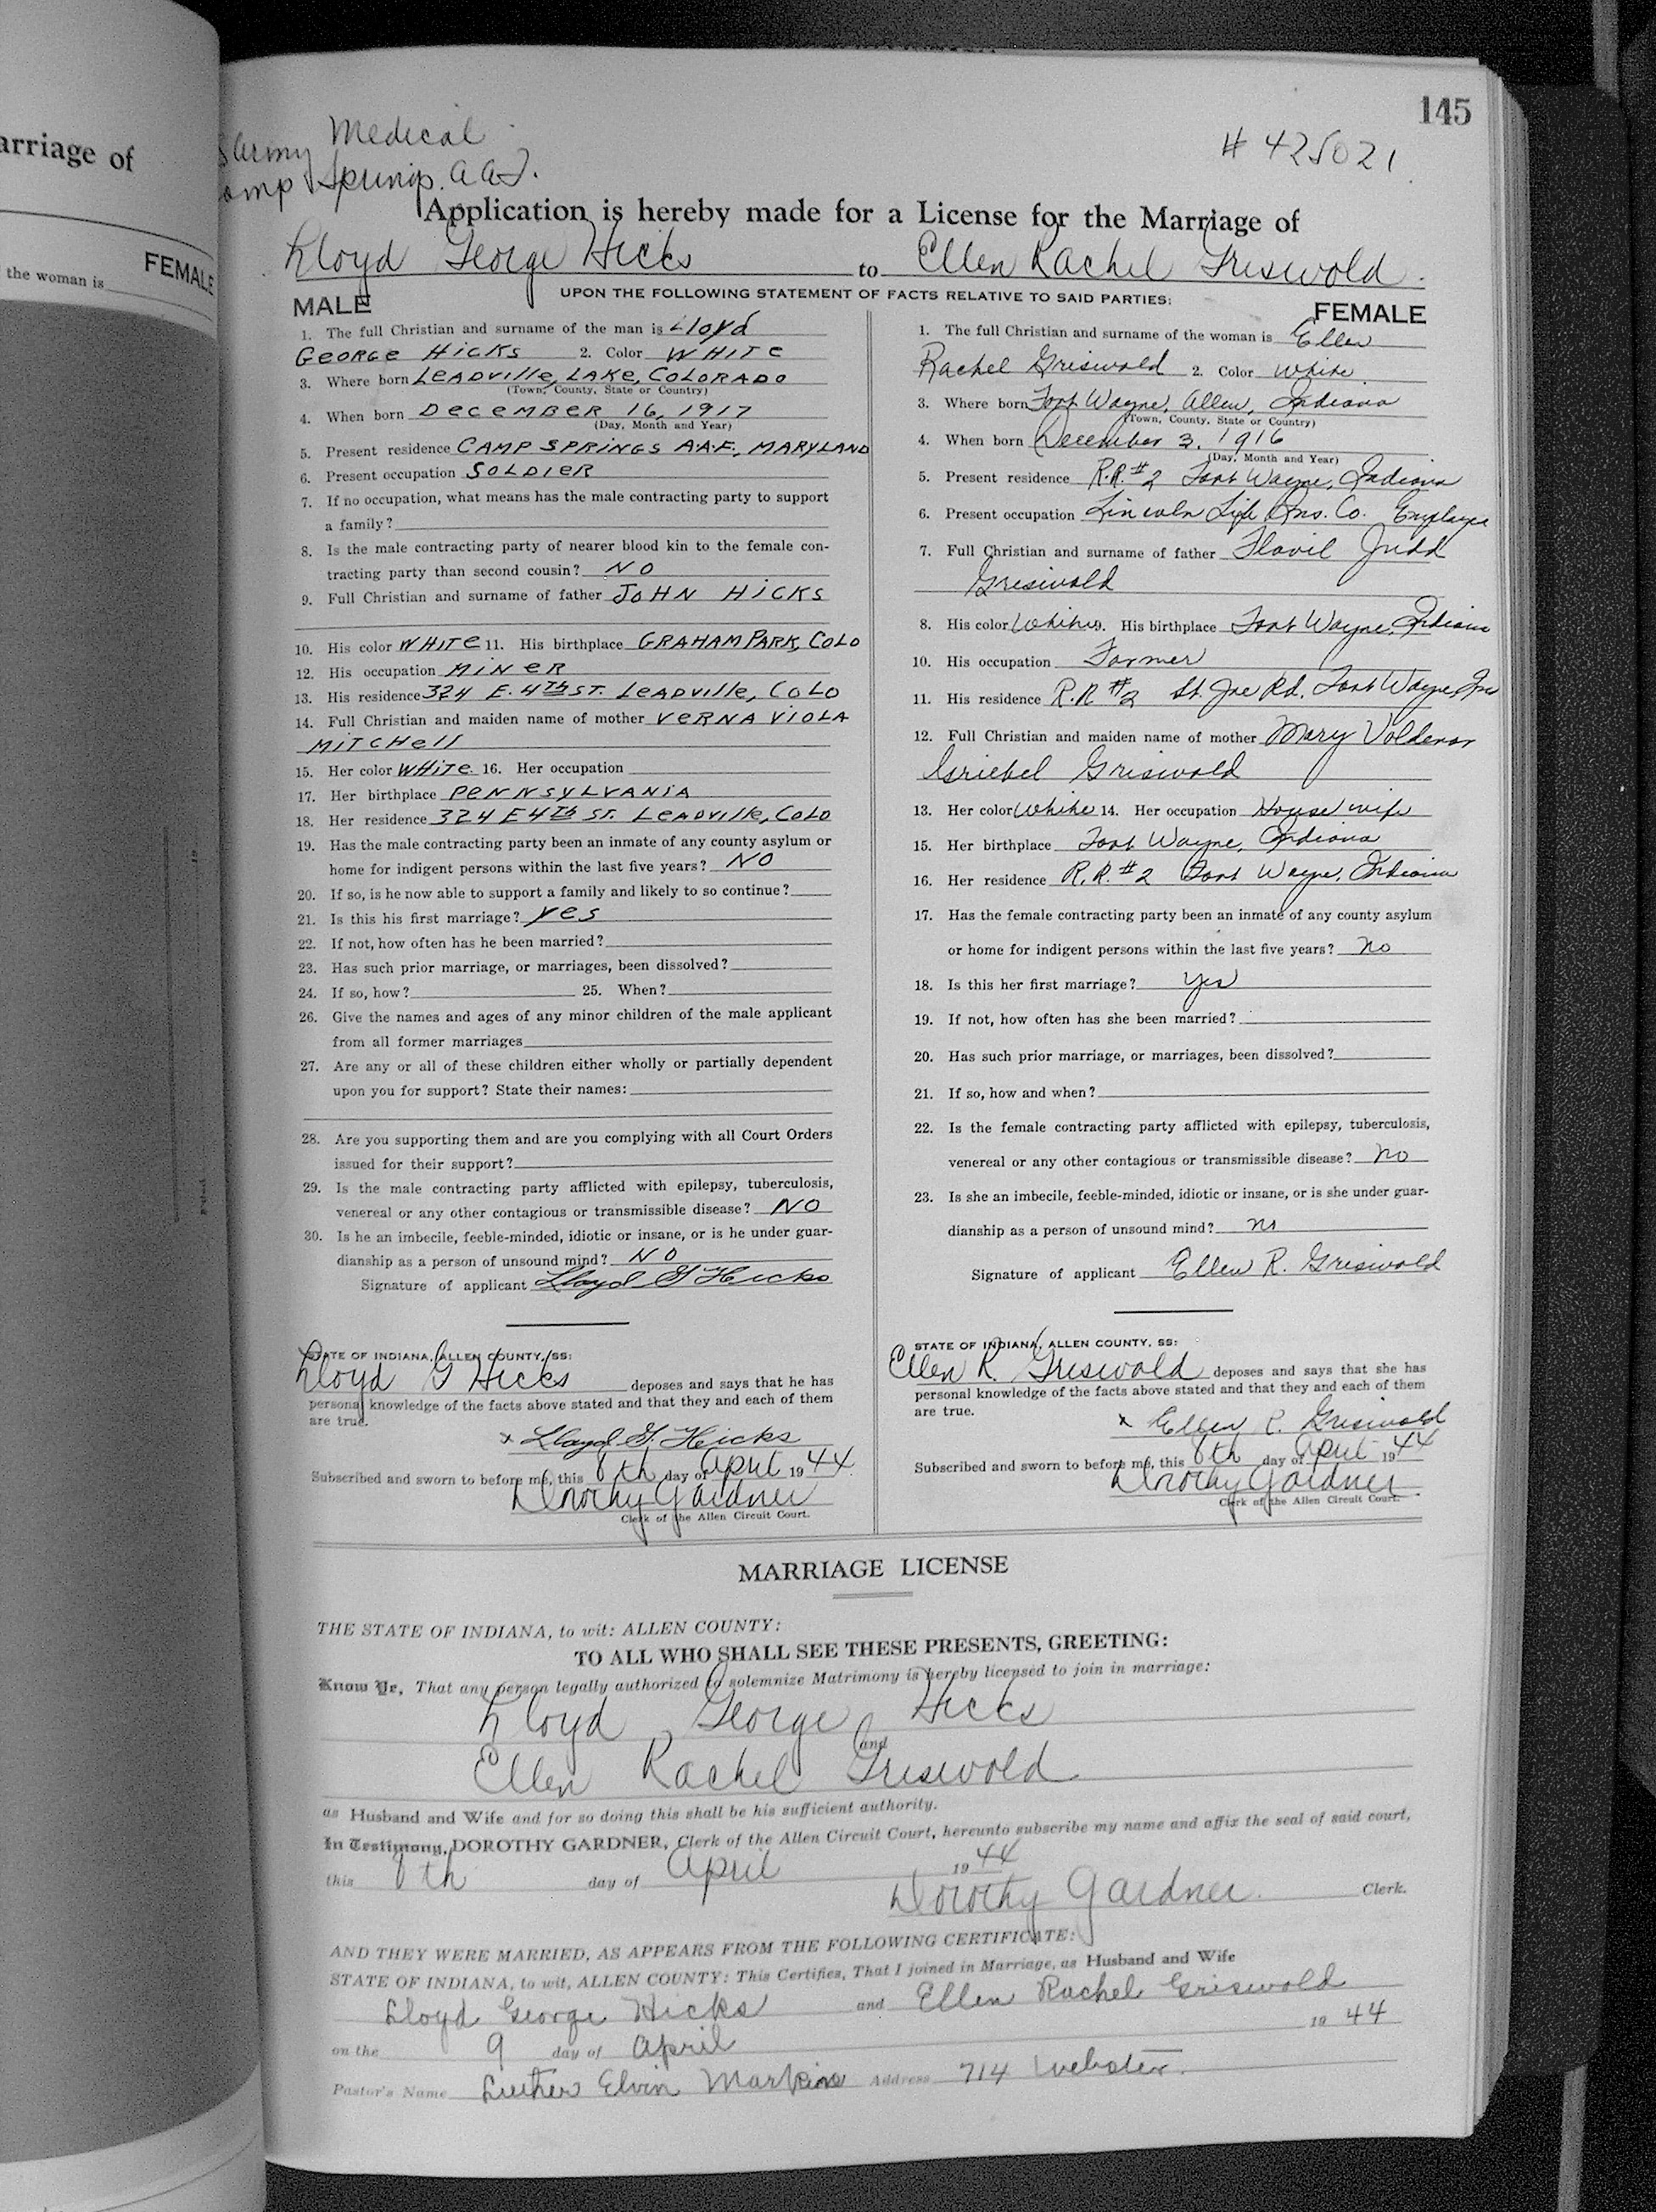 arriage of
FEMALE
the woman is
145
Army Medical
# 425021
Camp Springs. A A F.
Application is hereby made for a License for the Marriage of
Lloyd George Hicks to Ellen Rachel Griswold
UPON THE FOLLOWING STATEMENT OF FACTS RELATIVE TO SAID PARTIES:
MALE
1. The full Christian and surname of the man is Lloyd
George Hicks 2. Color White
3. Where born Leadville, Lake, Colorado
(Town, County, State or Country)
4. When born December 16, 1917
(Day, Month and Year)
5. Present residence Camp Springs A.A.F., Maryland
6. Present occupation Soldier
7. If no occupation, what means has the male contracting party to support
a family?
8. Is the male contracting party of nearer blood kin to the female con-
tracting party than second cousin? No
9. Full Christian and surname of father John Hicks
10. His color White 11. His birthplace Graham Park, Colo
12. His occupation Miner
13. His residence 324 E. 4th St. Leadville, Colo
14. Full Christian and maiden name of mother Verna Viola
Mitchell
15. Her color White. 16. Her occupation
17. Her birthplace Pennsylvania
18. Her residence 324 E 4th St. Leadville, Colo
19. Has the male contracting party been an inmate of any county asylum or
home for indigent persons within the last five years? No
20. If so, is he now able to support a family and likely to so continue?
21. Is this his first marriage? Yes
22. If not, how often has he been married?
23. Has such prior marriage, or marriages, been dissolved?
24. If so, how? 25. When?
26. Give the names and ages of any minor children of the male applicant
from all former marriages
27. Are any or all of these children either wholly or partially dependent
upon you for support? State their names:
28. Are you supporting them and are you complying with all Court Orders
issued for their support?
29. Is the male contracting party afflicted with epilepsy, tuberculosis,
venereal or any other contagious or transmissible disease? No
30. Is he an imbecile, feeble-minded, idiotic or insane, or is he under guar-
dianship as a person of unsound mind? No
Signature of applicant Lloyd G Hicks
STATE OF INDIANA, ALLEN COUNTY, SS:
Lloyd G Hicks deposes and says that he has
personal knowledge of the facts above stated and that they and each of them
are true.
x Lloyd G. Hicks
Subscribed and sworn to before me, this 8th day of April 1944
Dorothy Gardner
Clerk of the Allen Circuit Court.
FEMALE
1. The full Christian and surname of the woman is Ellen
Rachel Griswold 2. Color White
3. Where born Fort Wayne, Allen, Indiana
(Town, County, State or Country)
4. When born December 3, 1916
(Day, Month and Year)
5. Present residence R.R. #2 Fort Wayne, Indiana
6. Present occupation Lincoln Life Ins. Co. Employee
7. Full Christian and surname of father Flavil Judd
Griswold
8. His color White 9. His birthplace Fort Wayne, Indiana
10. His occupation Farmer
11. His residence R.R #2 St. Joe Rd. Fort Wayne, Ind
12. Full Christian and maiden name of mother Mary
Griebel Griswold
13. Her color White 14. Her occupation Housewife
15. Her birthplace Fort Wayne, Indiana
16. Her residence R.R. #2 Fort Wayne, Indiana
17. Has the female contracting party been an inmate of any county asylum
or home for indigent persons within the last five years? no
18. Is this her first marriage? Yes
19. If not, how often has she been married?
20. Has such prior marriage, or marriages, been dissolved?
21. If so, how and when?
22. Is the female contracting party afflicted with epilepsy, tuberculosis,
venereal or any other contagious or transmissible disease? no
23. Is she an imbecile, feeble-minded, idiotic or insane, or is she under guar-
dianship as a person of unsound mind? no
Signature of applicant Ellen R. Griswold
STATE OF INDIANA, ALLEN COUNTY, SS:
Ellen R. Griswold deposes and says that she has
personal knowledge of the facts above stated and that they and each of them
are true.
x Ellen R. Griswold
Subscribed and sworn to before me, this 8th day of April 1944
Dorothy Gardner
Clerk of the Allen Circuit Court.
MARRIAGE LICENSE
THE STATE OF INDIANA, to wit: ALLEN COUNTY:
TO ALL WHO SHALL SEE THESE PRESENTS, GREETING:
Know Ye, That any person legally authorized to solemnize Matrimony is hereby licensed to join in marriage:
Lloyd George Hicks
and
Ellen Rachel Griswold
as Husband and Wife and for so doing this shall be his sufficient authority.
In Testimony, DOROTHY GARDNER, Clerk of the Allen Circuit Court, hereunto subscribe my name and affix the seal of said court,
this 8th day of April 1944
Dorothy Gardner Clerk.
AND THEY WERE MARRIED, AS APPEARS FROM THE FOLLOWING CERTIFICATE:
STATE OF INDIANA, to wit, ALLEN COUNTY: This Certifies, That I joined in Marriage, as Husband and Wife
Lloyd George Hicks and Ellen Rachel Griswold
on the 9 day of April 1944
Pastor's Name Luther Elvin Markins Address 714 Webster.